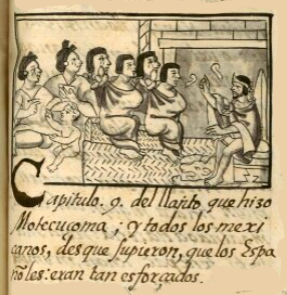 Capitulo. 9. del llanto que hizo
Motecuçoma, y todos los mexi
canos, des que supieron, que los Espa
ñoles: eran tan esforçados.